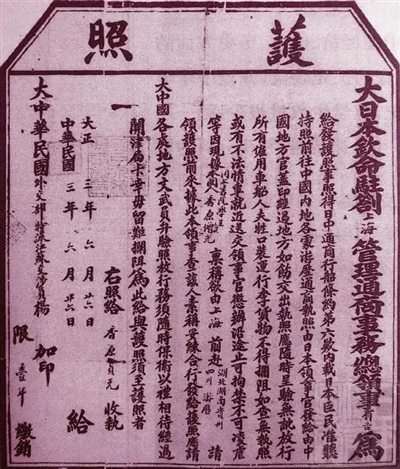 護照
大日本欽命駐劄上海管理通商事務總領事 為
給發護照事照得日中通商行船條約第六款內載日本臣民准聽
持照前往中國內地各處游歷通商執照由日本領事官發給由中
國地方官蓋印經過地方如飭交出執照應隨時呈驗無訛放行
所有僱用車船人夫牲口裝運行李貨物不得攔阻如查無執照
或有不法情事就近送交領事官懲辦沿途止可拘禁不可凌虐
等因現據本國人 香原增元 稟稱欲由上海 前赴 湖北湖南貴州四川 游歷 請
領護照前來據此本領事查該人素稱安練合行發給護照應請
大中國各處地方文武員弁驗照放行務須隨時保衛以禮相待經過
關津局卡幸毋留難攔阻為此給與護照須至護照者
右照給 香原 元 收執
大正 三年 六月 廿六日
中華民國 三年 六月 廿六日 給
大中華民國外交部特派江蘇交涉員楊 加印
限 壹年 繳銷